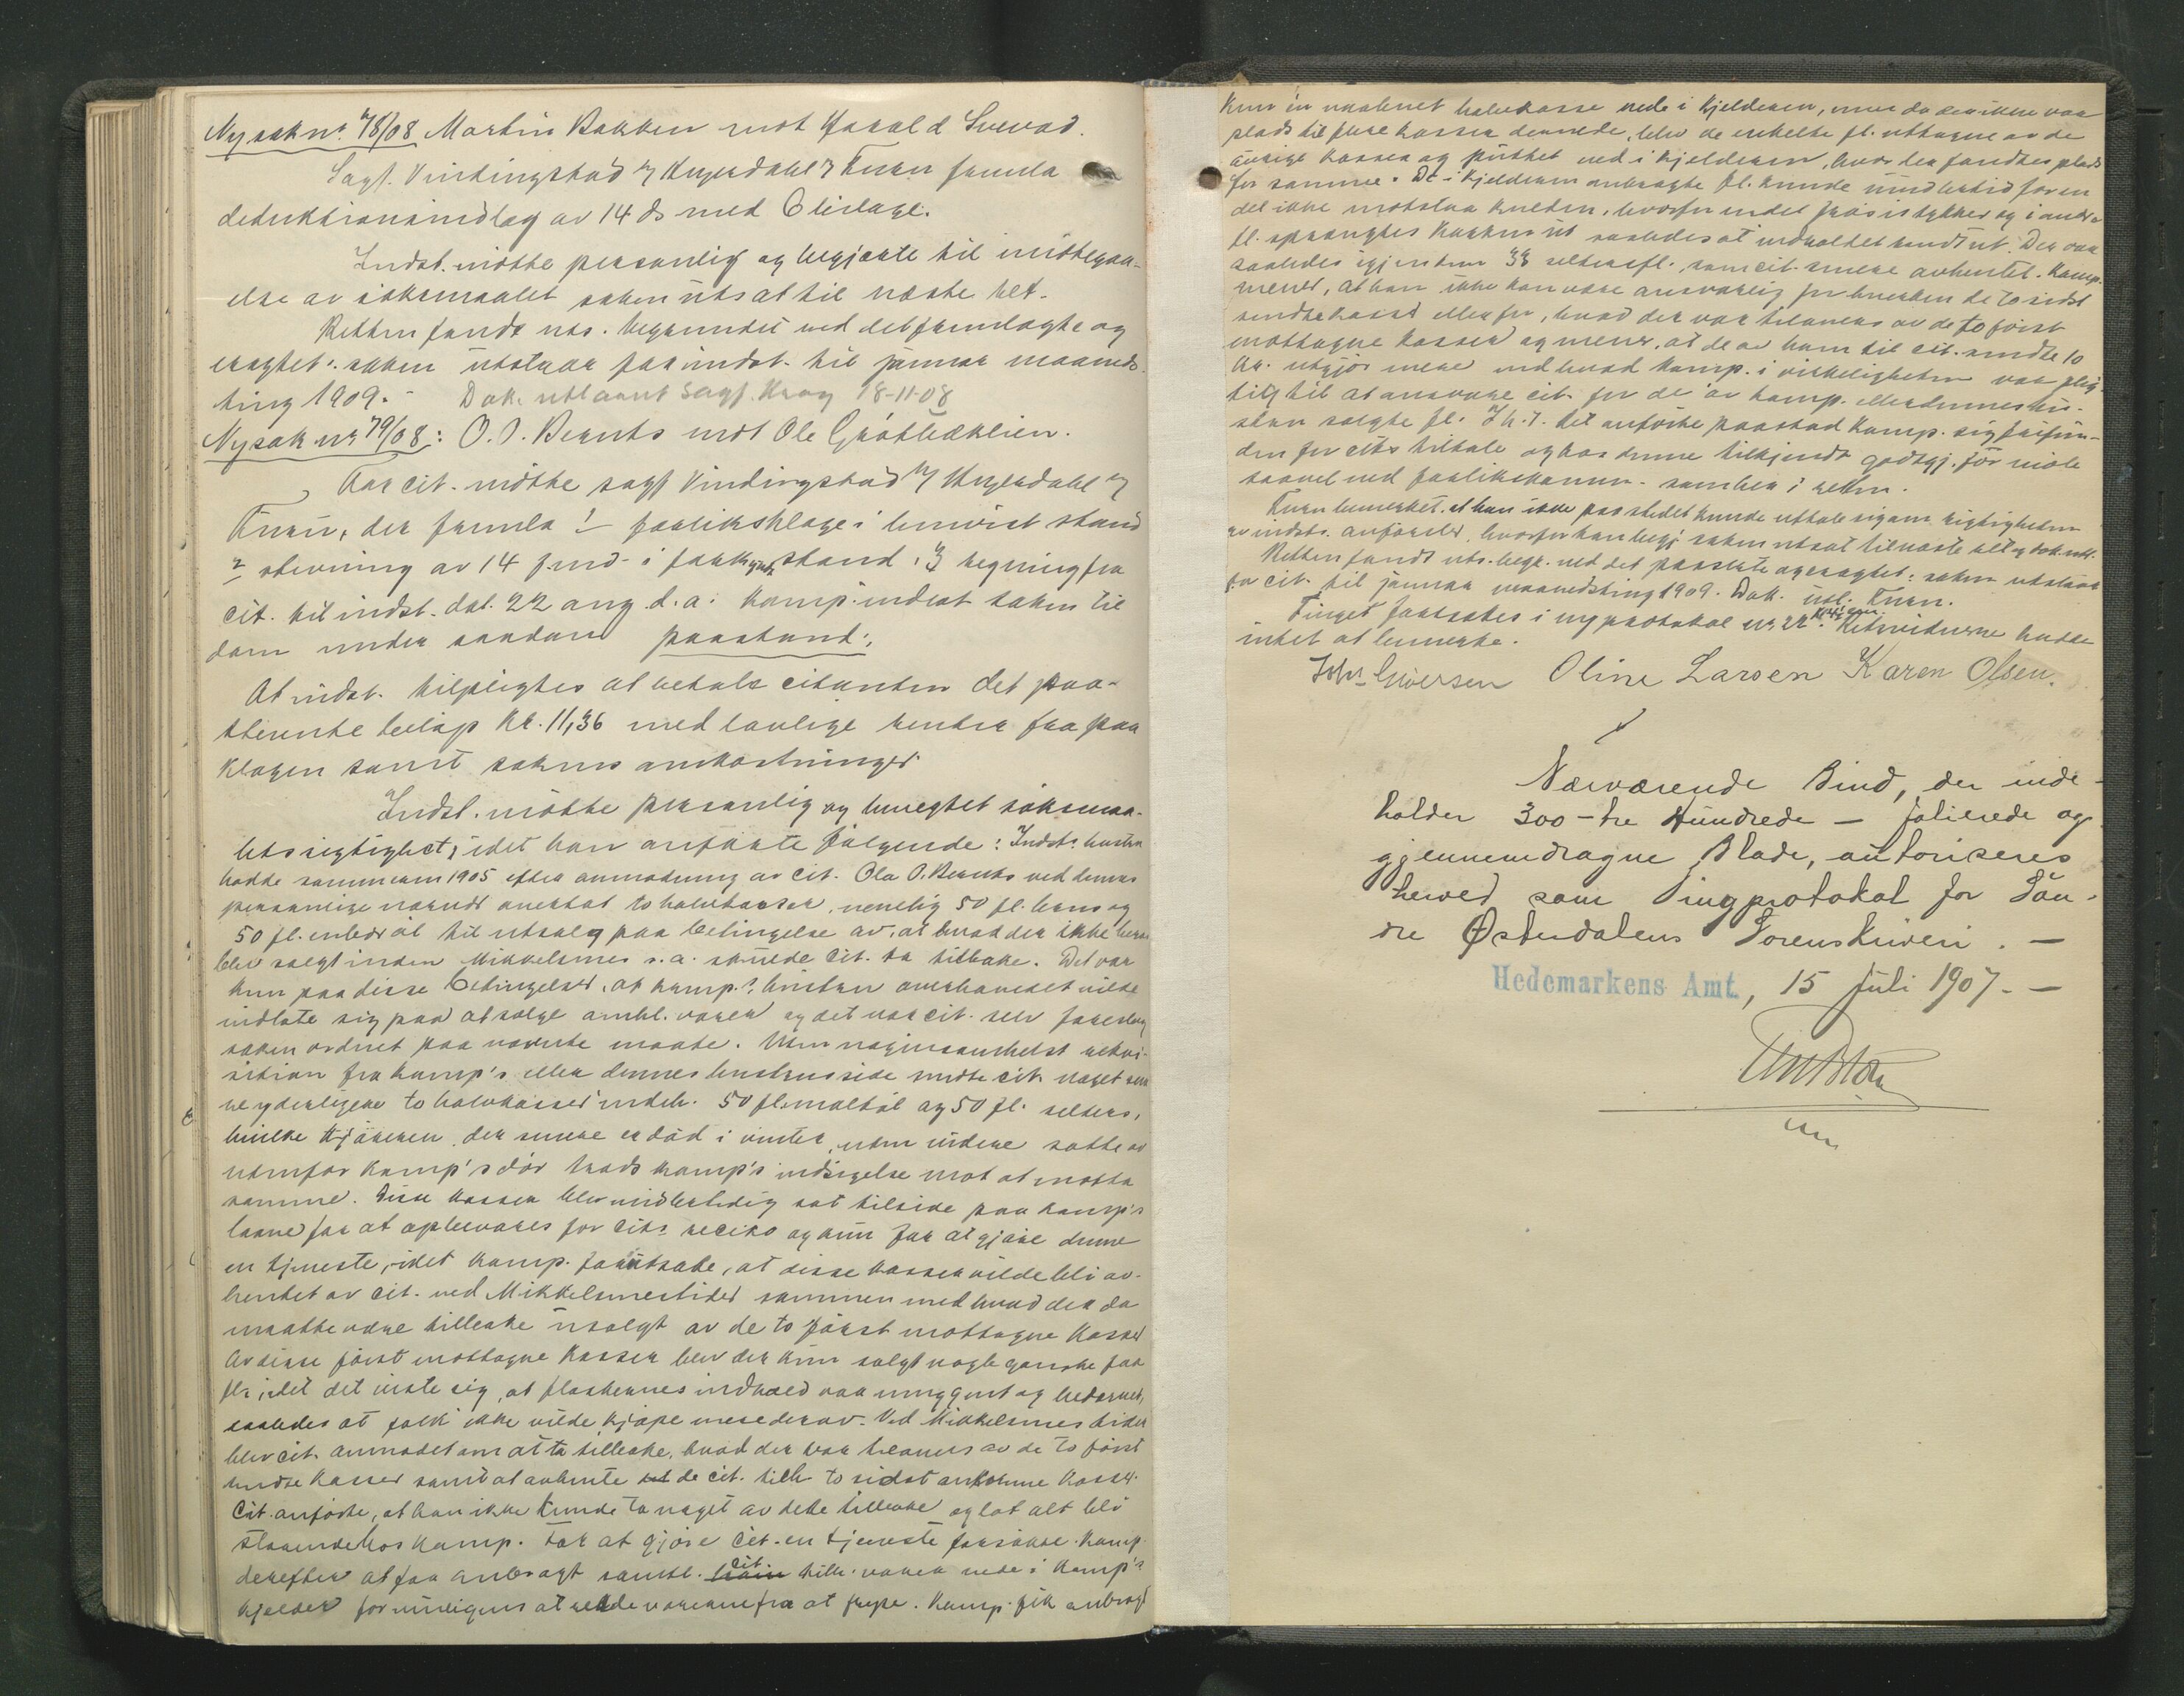 Ny sak nr. 78/08 Martin Bakken mot Harald Svevad.
Sagf. Vindingstad v/ Hugendahl v/ Kuru fremla
deduktionsindlæg av 14 ds med 6 bilage.
Indst. møtte personlig og begjærte til imøtegaa-
else av søksmaalet saken utsat til næste ret.
Retten fandt uts. begrundet ved det fremlagte og
eragtet: saken utstaar for indst. til januar maaneds-
ting 1909. - Dok. utlaant sagf. Krag 18-11-08
Ny sak nr 79/08: O. O. Bernts mot Ole Grøtbæklien.
For cit. møtte sagf Vindingstad v/ Hugendahl v/
Kuru, der fremla 1 forliksklage i henvist stand
2 stevning av 14 f.md. i forkyndt stand, 3 regning fra
cit. til indst. dat. 22 aug d. a. Komp. indlot saken til
dom under saadan paastand:
At indst. tilpligtes at betale citanten det paa-
stevnte beløp kr. 11,36 med lovlige renter fra for
klagen samt sakens omkostninger.
Indst. møtte personlig og benegtet søksmaa-
lets rigtighet, idet han anførte følgende: Indst.s hustru
hadde sommeren 1905 efter anmodning av cit. Ola O. Bernts ved dennes
personlige nærvær mottat to halvkasser, nemlig 50 fl. brus og
50 fl. enebærøl til utsalg paa betingelse av, at hvad der ikke
blev solgt inden Mikkelsmes s. a. skulde cit. ta tilbake. Det var
kun paa disse betingelser, at komp.s hustru overhovedet vilde
indlate sig paa at sælge omhl. varer og det var cit. selv
saken ordnet paa nævnte maate. Uten nogensomhelst rekvi-
sition fra komp's eller dennes hustrus side sendte cit. noget sen
re yderligere to halvkasser indeh. 50 fl. maltøl og 50 fl. selters,
hvilke kjøreren, der senere er død i vinter, uten videre satte av
utenfor komp's dør trods komp's indsigelse mot at motta
samme. Disse kasser blev midlertidig sat tilside paa komp's
laave for at opbevares for cit.s reciko og kun for at gjøre denne
en tjeneste, idet komp. forutsatte, at disse kasser vilde bli av-
hentet av cit. ved Mikkelsmestider sammen med hvad der da
maatte være tilbake usolgt av de to først mottagne kasser
Av disse først mottagne kasser blev der kun solgt nogle ganske faa
fl., idet det viste sig, at flaskernes indhold var muggent og bedærvet,
saaledes at folk ikke vilde kjøpe mere derav. Ved Mikkelsmes tider
blev cit. anmodet om at ta tilbake, hvad der var tilovers av de to først
sendte kasser samt at avhente de cit. tilh. to sidst ankomne kasser.
Cit. anførte, at han ikke kunde ta noget av dette tilbake og lot alt bli
staaende hos komp. For at gjøre cit. en tjeneste forsøkte komp.
derefter at faa anbragt samtl. cit. tilh. varer nede i komp's
kjelder for muligens at redde varerne fra at fryse. Komp. fik anbragt
kun en uaabnet halvkasse nede i kjelderen, men da der ikke var
plads til flere kasser dernede, blev de enkelte fl. uttagne av de
øvrige kasser og puttet ned i kjelderen, hvor der fandtes plads
for samme. De i kjelderen anbragte fl. kunde imidlertid for en
del ikke motstaa kulden, hvorfor endel frøs i stykker og i andre
fl. sprængtes korken ut saaledes at indholdet rendt ut. Der var
saaledes igjen kun 33 seltersfl., som cit. senere avhentet. Komp.
mener, at han ikke kan være ansvarlig for hverken de to sidst
sendte kasser eller for, hvad der var tilovers av de to først
mottagne kasser og mener, at de av ham til cit. sendte 10
kr. utgjør mere end hvad komp. i virkeligheten var plig-
tig til at ansvare cit. for de av komp. eller dennes hu-
stru solgte fl. I h. t. det anførte paastod komp. sig frifun-
den for cit.s tiltale og hos denne tilkjendt godtgj. for møte
saavel ved forlikskommn. som her i retten.
Kuru bemerket, at han ikke paa stedet kunde uttale sig om rigtigheten
av indst.s anførsler, hvorfor han begj. saken utsat til næste ret og dok. utl.
Retten fandt uts. begr. ved det passerte og eragtet: saken utstaar
for cit. til januar maanedsting 1909. Dok. utl. Kuru.
Tinget fortsattes i ny protokol nr. 22. Retsvidnerne hadde
intet at bemerke.
Johs. Grøersen Oline Larsen Karen Olsen.
Nærværende Bind, der inde-
holder 300 - tre Hundrede - folierede og
gjennemdragne Blade, autoriseres
herved som Tingprotokol for Søn-
dre Østerdalens Sorenskriveri. -
Hedemarkens Amt, 15 Juli 1907. -